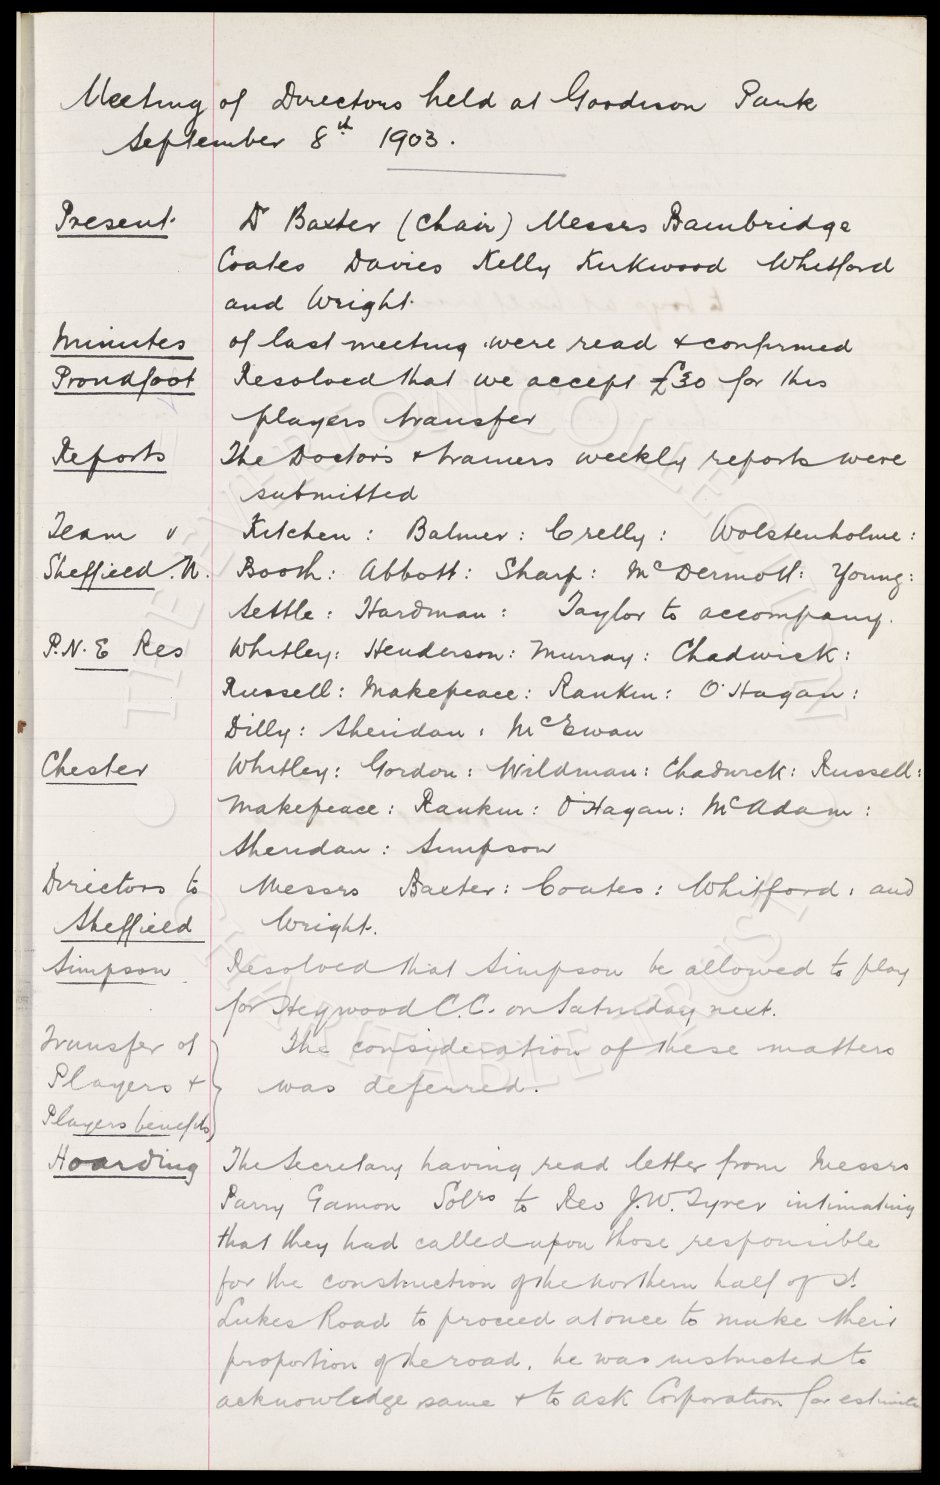 Meeting of Directors held at Goodison Park
September 8th 1903.
Present. Dr Baxter (Chair) Messrs Bainbridge
Coates Davies Kelly Kirkwood Whitford
and Wright.
Minutes of last meeting were read & confirmed
Proudfoot Resolved that we accept £30 for this
players transfer
Reports The Doctors & trainers weekly reports were
submitted
Team v Kitchen: Balmer: Crelly: Wolstenholme:
Sheffield U. Booth: Abbott: Sharp: McDermott: Young:
Settle: Hardman: Taylor to accompany.
P.N.E Res Whitley: Henderson: Murray: Chadwick:
Russell: Makepeace: Rankin: O'Hagan:
Dilly: Sheridan: McEwan
Chester Whitley: Gordon: Wildman: Chadwick: Russell:
Makepeace: Rankin: O'Hagan: McAdam:
Sheridan: Simpson
Directors to Messrs Baxter: Coates: Whitford: and
Sheffield Wright.
Simpson Resolved that Simpson be allowed to play
for Heywood C.C. on Saturday next.
Transfer of The consideration of these matters
Players & was deferred.
Players benefits
Hoarding The Secretary having read letter from Messrs
Parry Gamon Solrs to Rev J.W. Tyrer intimating
that they had called upon those responsible
for the construction of the northern half of St.
Lukes Road to proceed at once to make their
proportion of the road, he was instructed to
acknowledge same & to ask Corporation for estimate
THE EVERTON COLLECTION
CHARITABLE TRUST